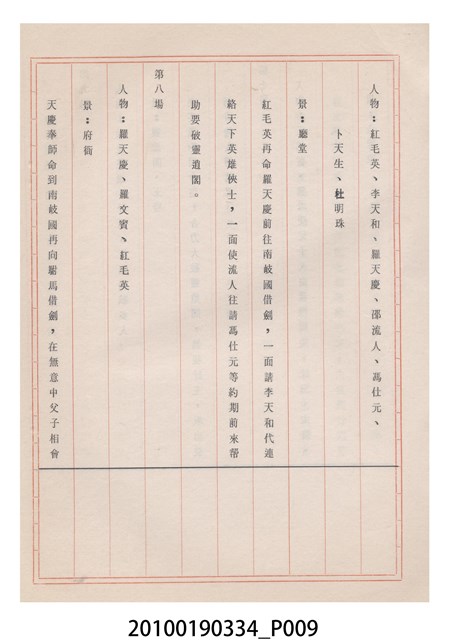 人物：紅毛英、李天和、羅天慶、邵流人、馮仕元、
卜天生、杜明珠
景：廳堂
紅毛英再命羅天慶前往南岐國借劍，一面請李天和代連
絡天下英雄俠士，一面使流人往請馮仕元等約期前來幫
助要破靈逍閣。
第八場
人物：羅天慶、羅文賓、紅毛英
景：府衙
天慶奉師命到南岐國再向駙馬借劍，在無意中父子相會
20100190334_P009